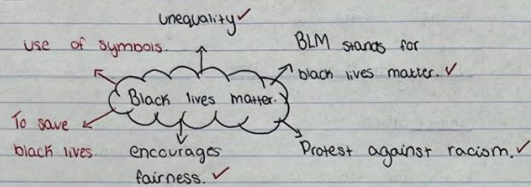 unequality ✓
use of symbols.
BLM stands for
black lives matter. ✓
Black lives matter.
To save
black lives.
encourages
fairness. ✓
Protest against racism. ✓